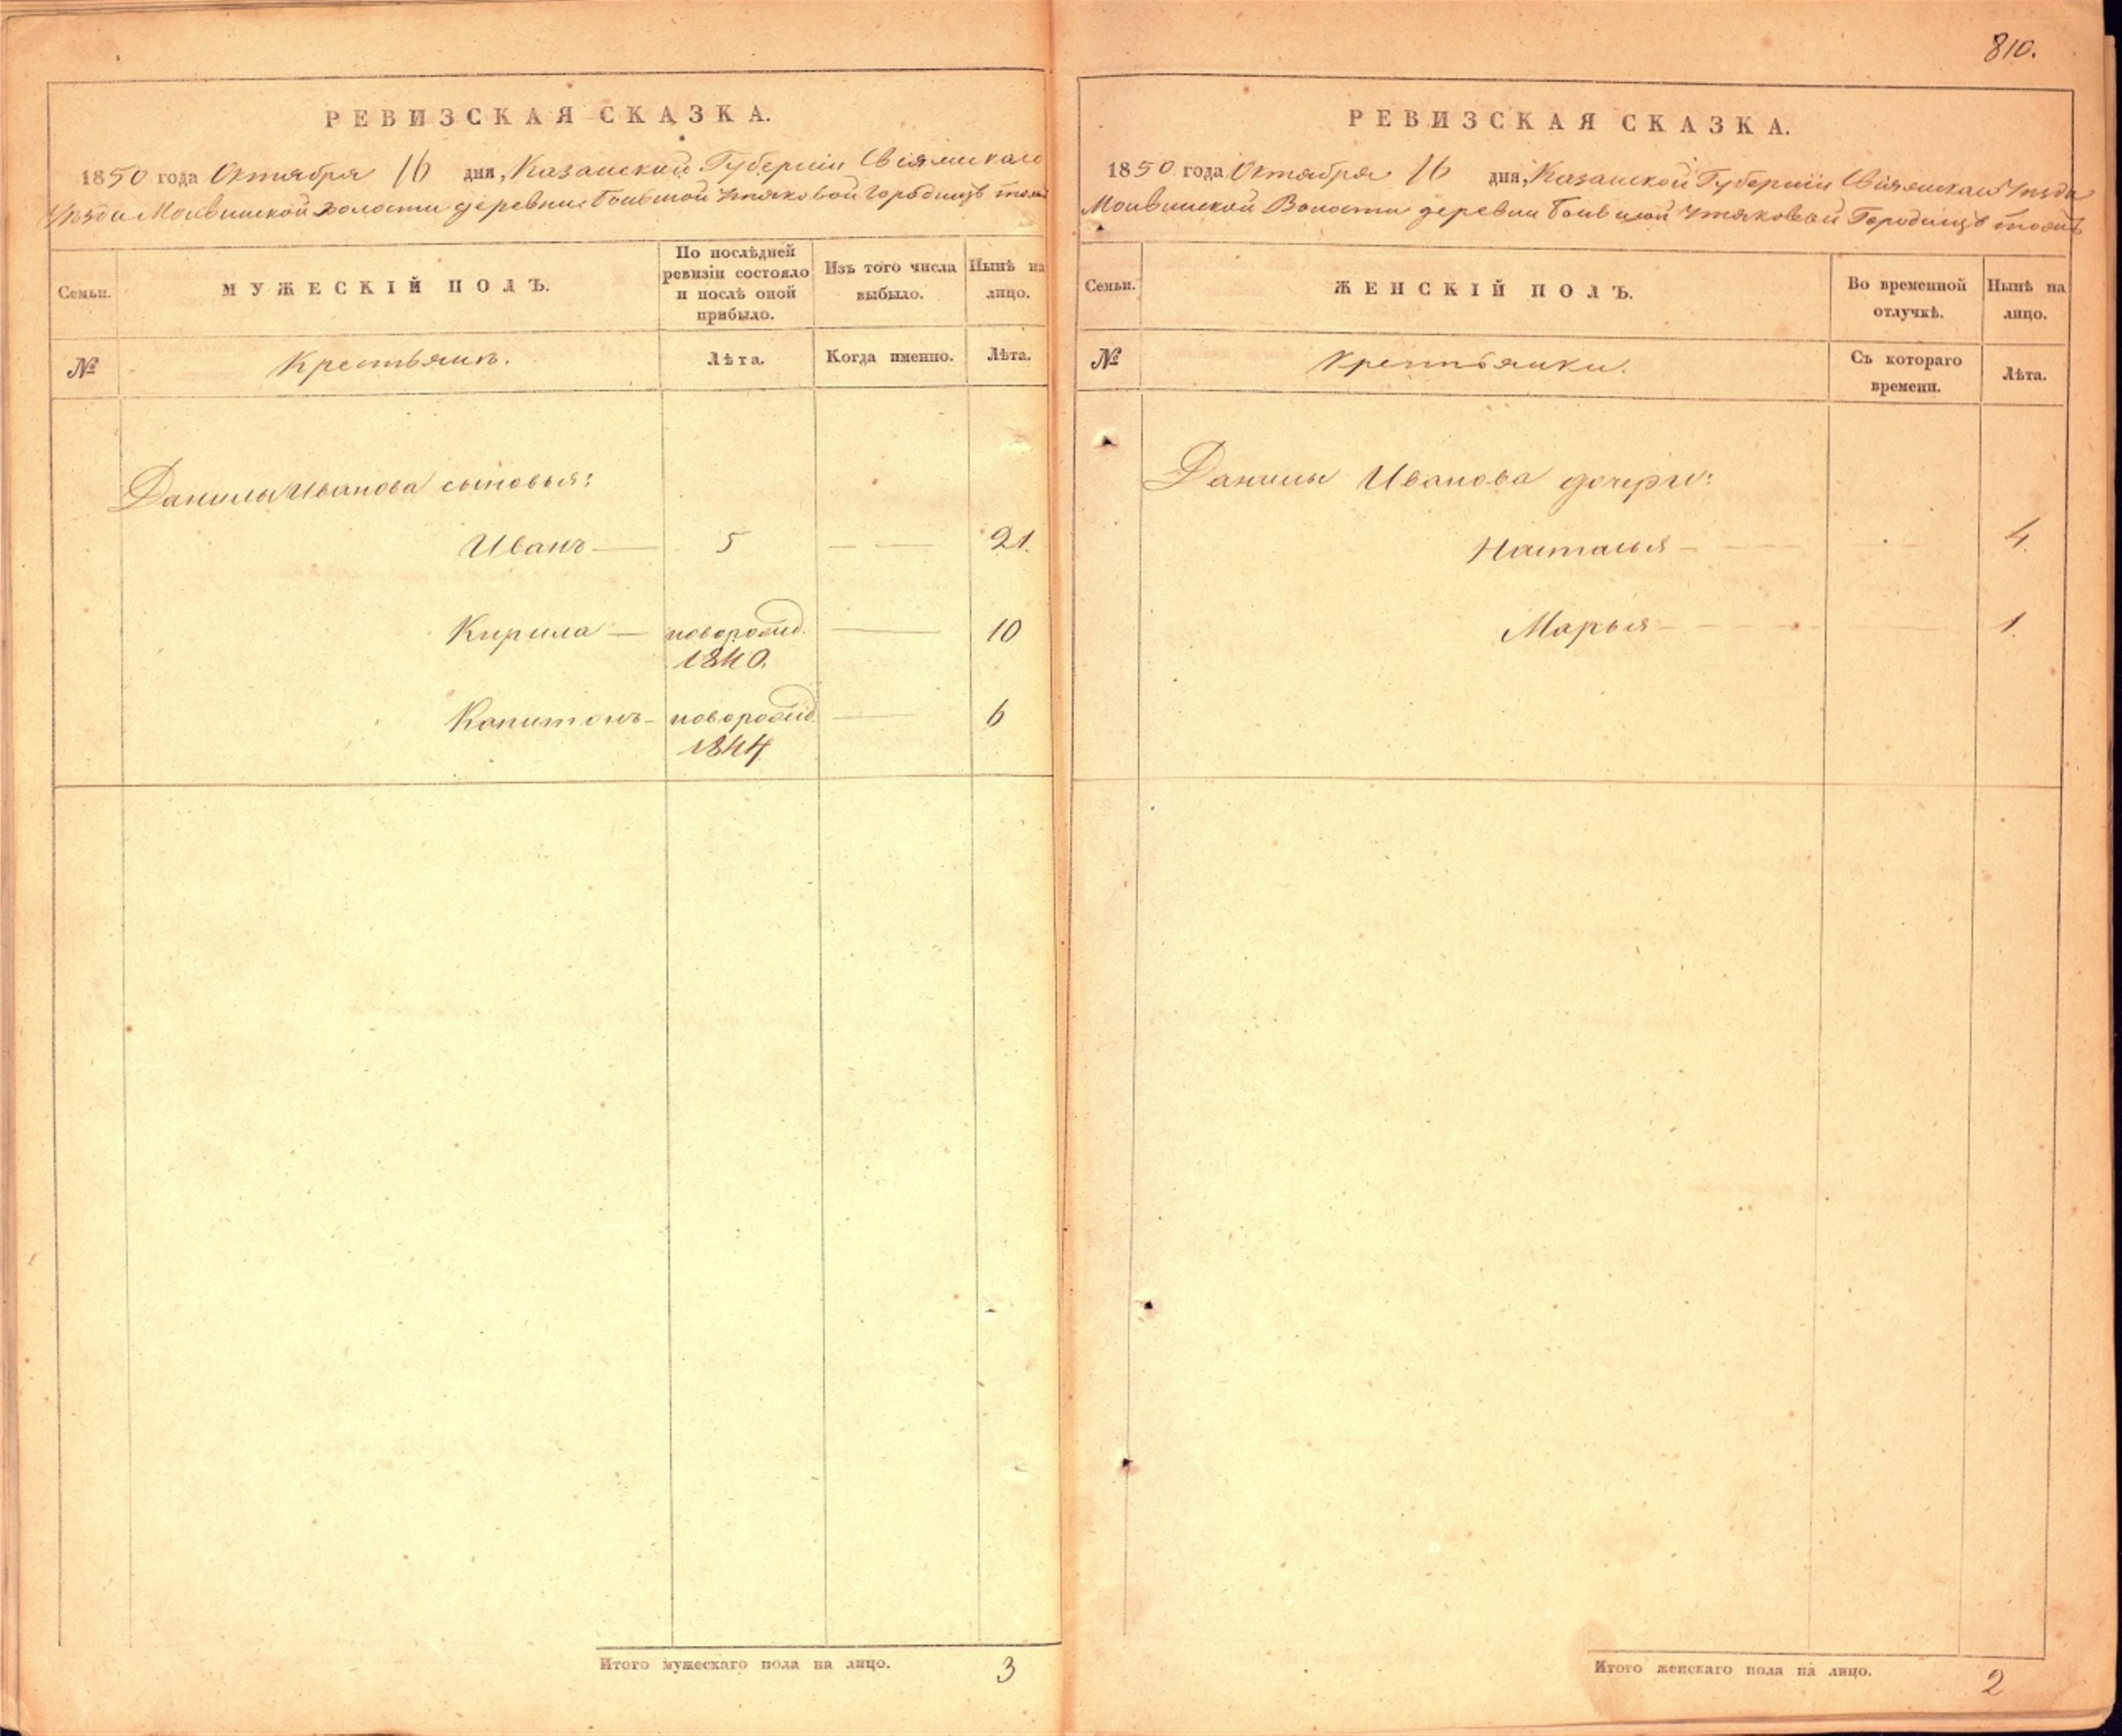 РЕВИЗСКАЯ СКАЗКА.
1850 года Октября 16 дня, Казанской Губернiи Свiяжскаго
Уѣзда Молвинской волости деревни Большой Утяковой Городище тожъ
Семьи.
МУЖЕСКІЙ ПОЛЪ.
По послѣдней ревизіи состояло и послѣ оной прибыло.
Изъ того числа выбыло.
Нынѣ на лицо.
№
Крестьянъ.
Лѣта.
Когда именно.
Лѣта.
Данилы Иванова сыновья:
Иванъ 5 21.
Кирила новорожд. 10
1840.
Капитонъ новорожд. 6
1844
Итого мужескаго пола на лицо. 3
810.
РЕВИЗСКАЯ СКАЗКА.
1850 года Октября 16 дня, Казанской Губернiи Свiяжскаго Уѣзда
Молвинской Волости деревни Большой Утяковой Городище тожъ
Семьи.
ЖЕНСКІЙ ПОЛЪ.
Во временной отлучкѣ.
Нынѣ на лицо.
№
Крестьянки.
Съ котораго времени.
Лѣта.
Данилы Иванова дочери:
Наталья 4.
Марья 1.
Итого женскаго пола на лицо. 2